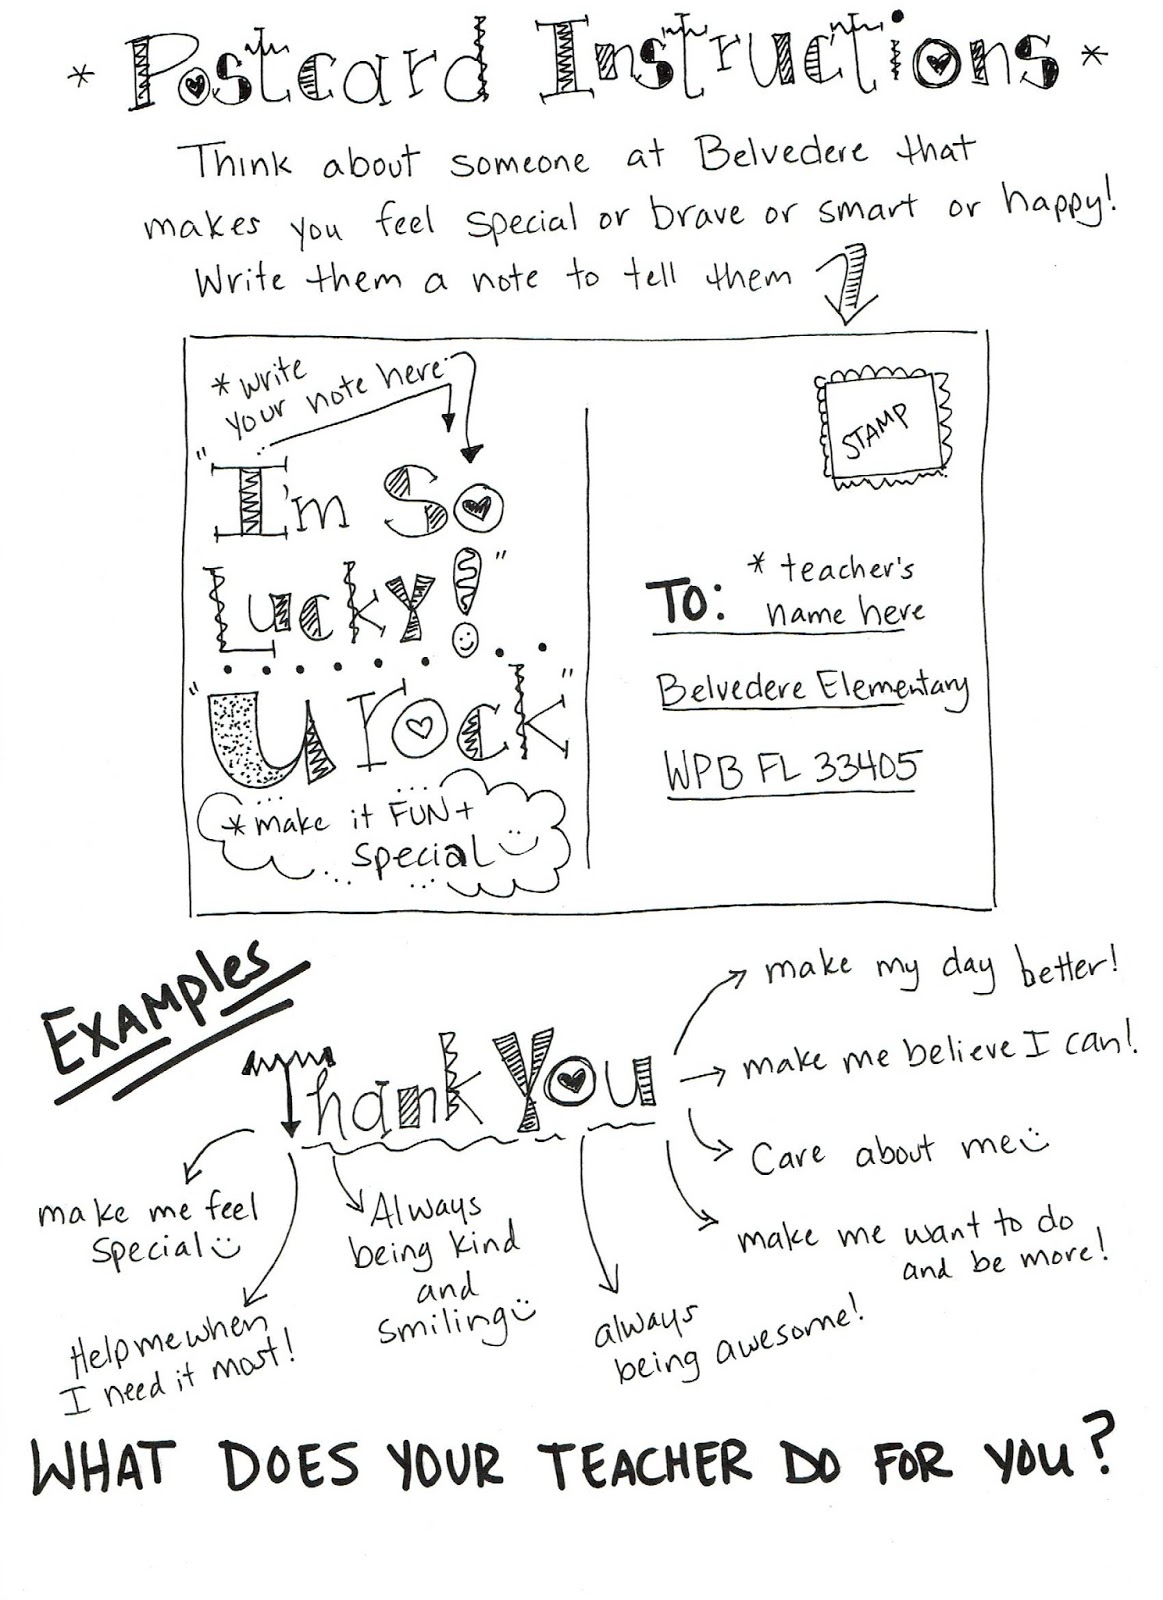 * Postcard Instructions *
Think about someone at Belvedere that
makes you feel special or brave or smart or happy!
Write them a note to tell them
* write
your note here
"I'm So
Lucky!"
"U rock"
* make it FUN +
special
STAMP
To: * teacher's
name here
Belvedere Elementary
WPB FL 33405
Examples
Thank You
make my day better!
make me believe I can!
Care about me
make me want to do
and be more!
make me feel
special
Help me when
I need it most!
Always
being kind
and
smiling
always
being awesome!
WHAT DOES YOUR TEACHER DO FOR YOU?